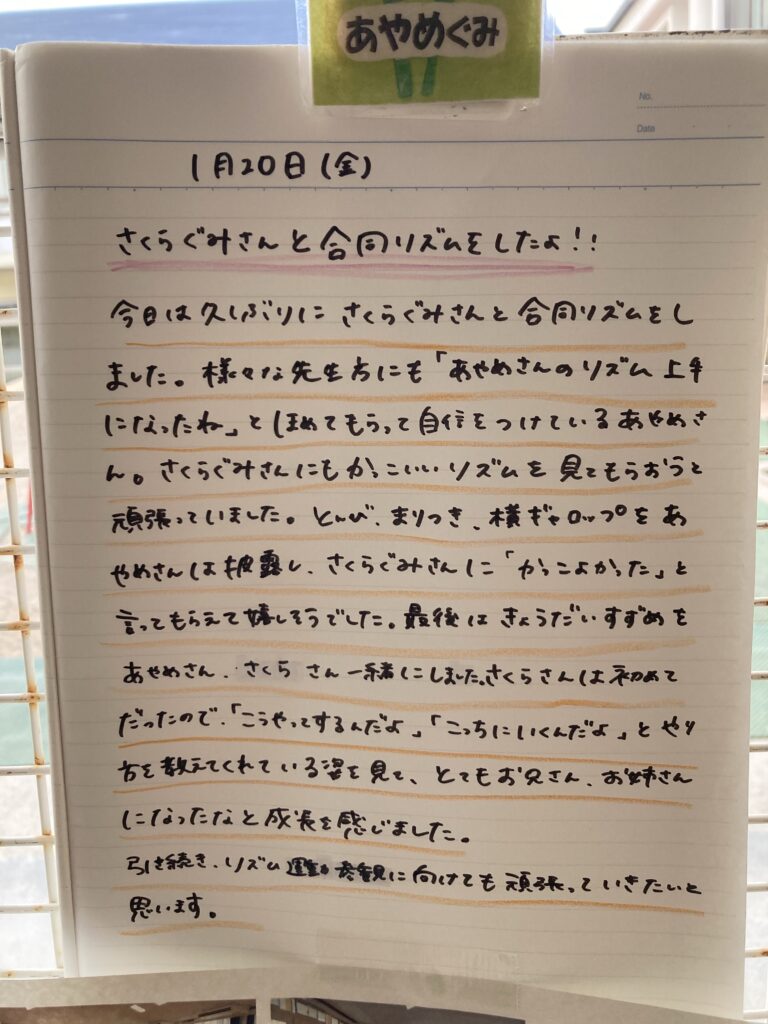 あやめぐみ
No.
Date
1月20日(金)
さくらぐみさんと合同リズムをしたよ!!
今日は久しぶりにさくらぐみさんと合同リズムをし
ました。様々な先生方にも「あやめさんのリズム上手
になったね」とほめてもらって自信をつけているあやめさ
ん。さくらぐみさんにもかっこいいリズムを見てもらおうと
頑張っていました。とんび、まりつき、横ギャロップをあ
やめさんは披露し、さくらぐみさんに「かっこよかった」と
言ってもらえて嬉しそうでした。最後はきょうだいすずめを
あやめさん、さくらさん一緒にしました。さくらさんは初めて
だったので、「こうやってするんだよ」「こっちにいくんだよ」とやり
方を教えてくれている姿を見て、とてもお兄さん、お姉さん
になったなと成長を感じました。
引き続き、リズム参観に向けても頑張っていきたいと
思います。